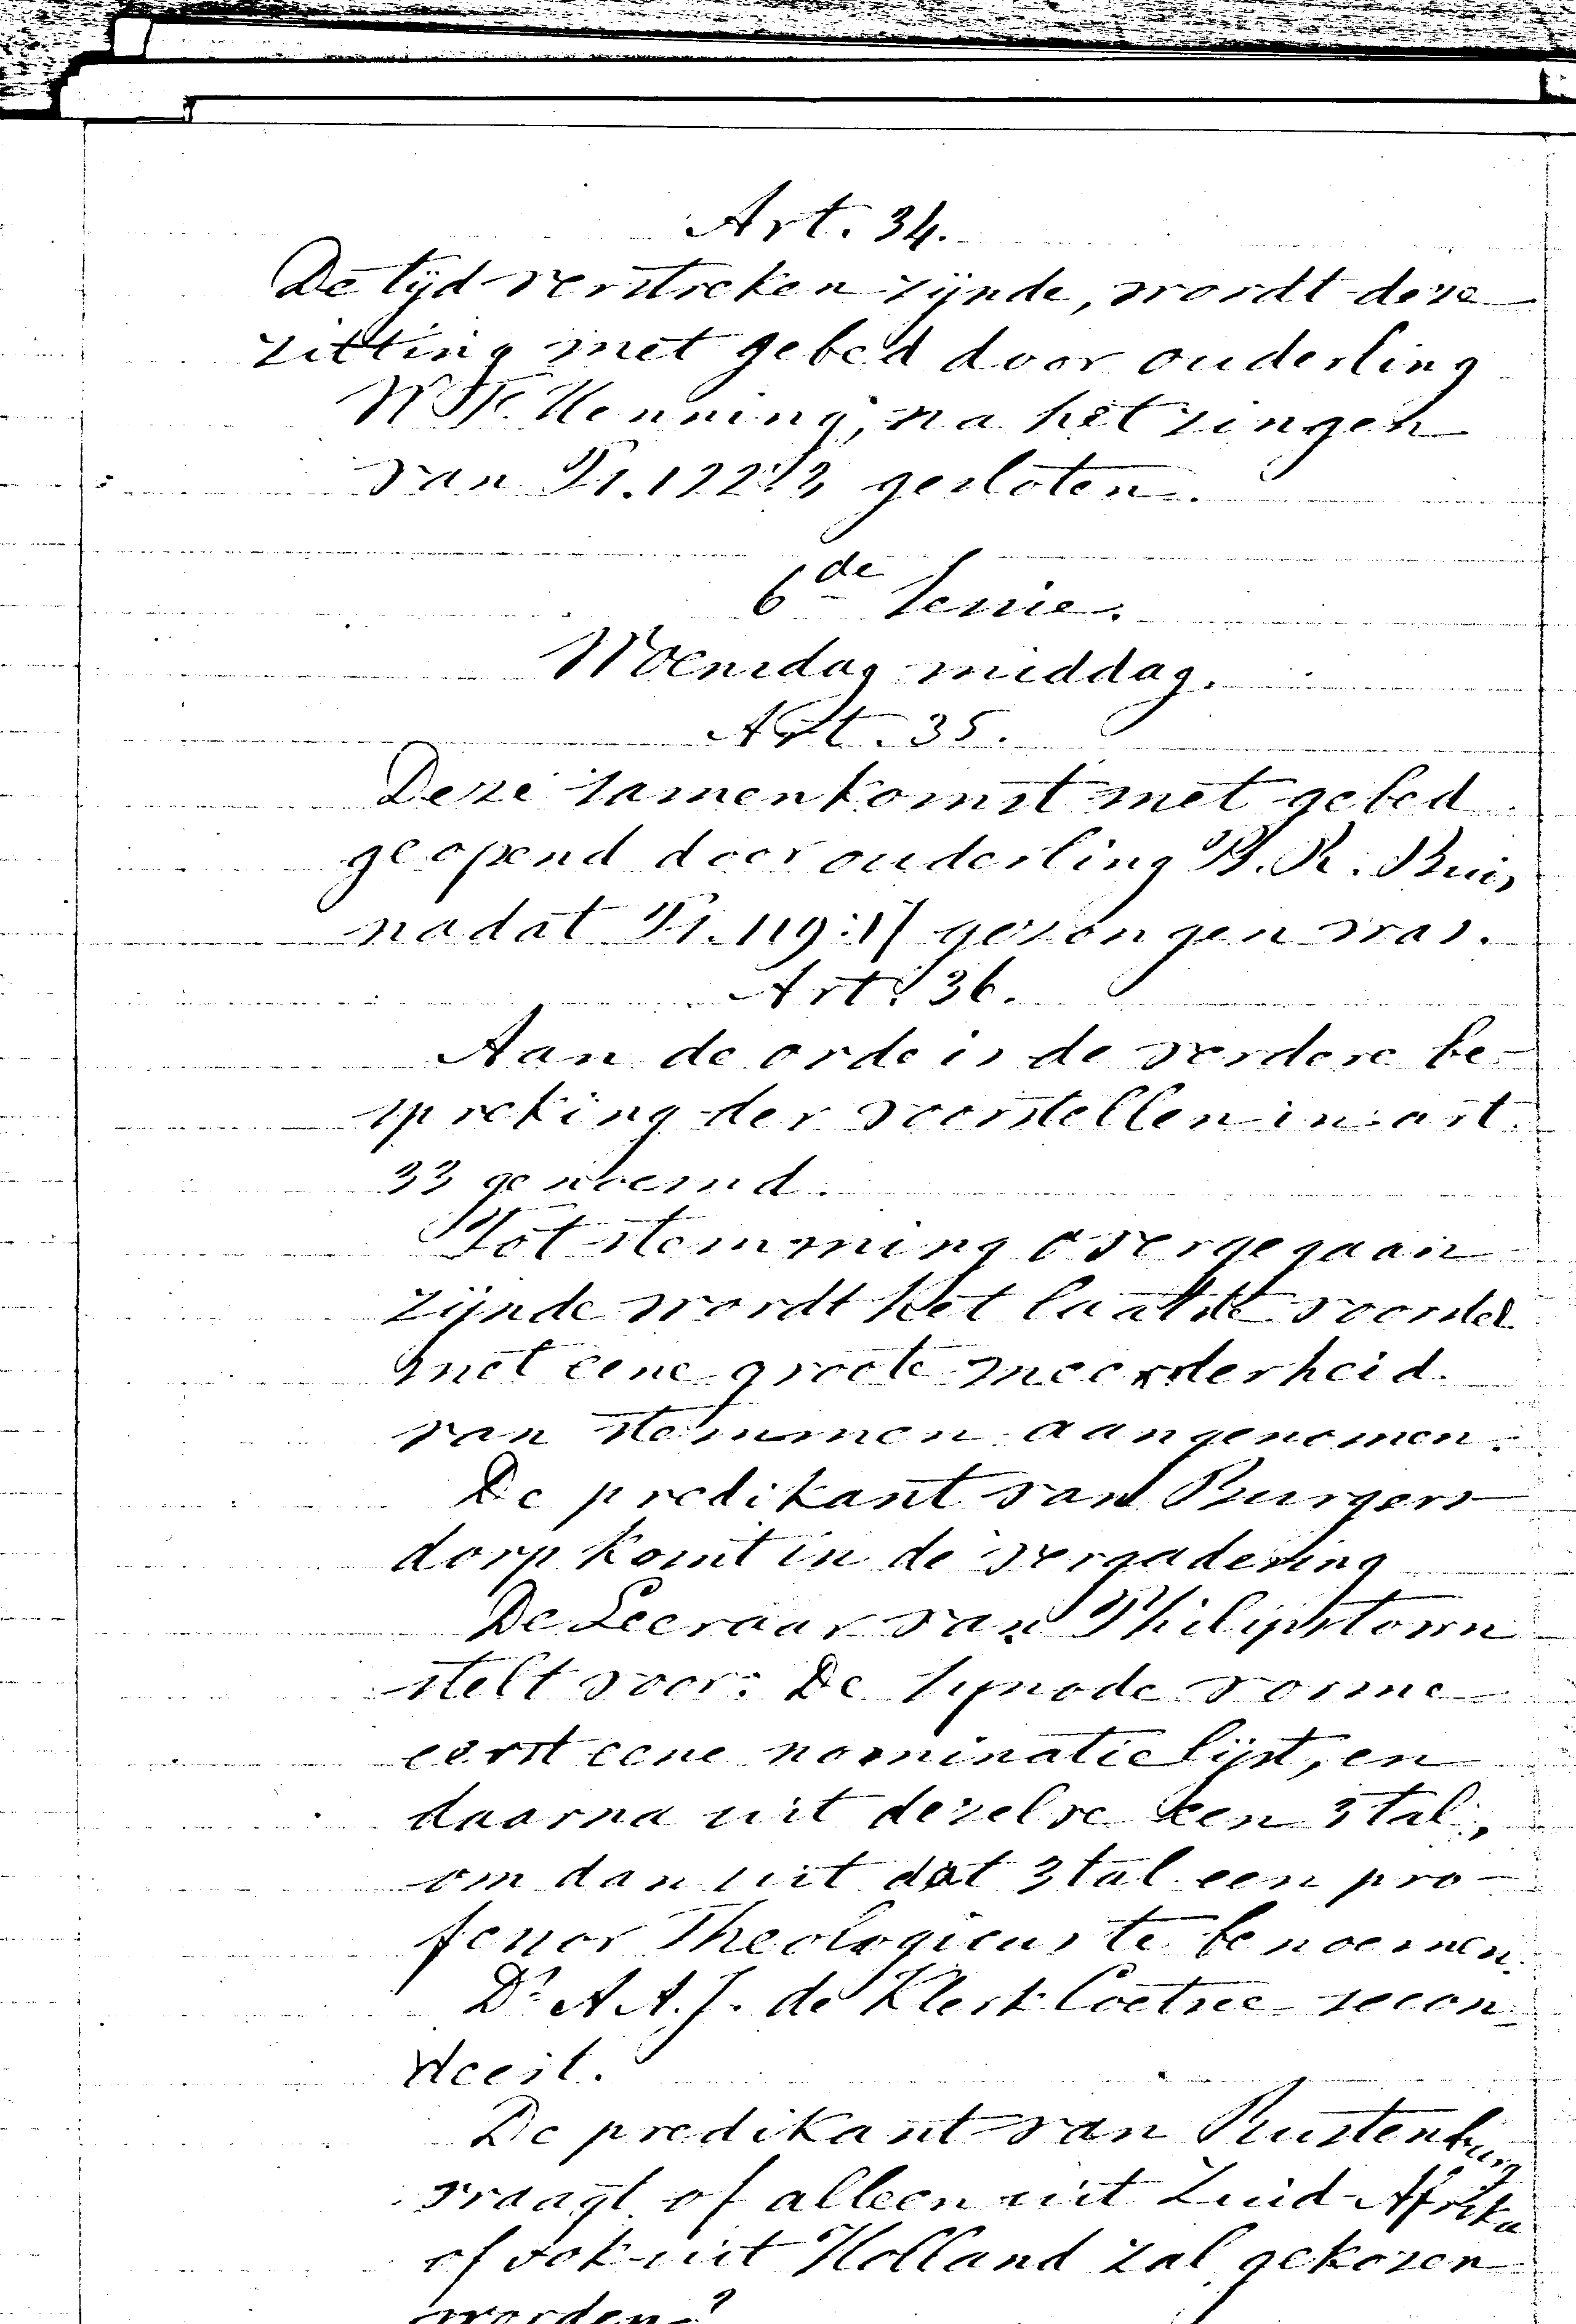 Art. 34.
De tijd verstreken zijnde, wordt deze
zitting met gebed door ouderling
W. F. Henning, na het zingen
van Ps. 122:3 gesloten.
6de Sessie.
Woensdag middag.
Art. 35.
Deze samenkomst met gebed
geopend door ouderling B. R. Buis,
nadat Ps. 119:17 gezongen was.
Art. 36.
Aan de orde is de verdere be-
spreking der voorstellen in art.
33 genoemd.
Tot stemming overgegaan
zijnde wordt het laatste voorstel
met eene groote meerderheid
van stemmen aangenomen.
De predikant van Burgers
dorp komt in de vergadering
De Leeraar van Philipstown
stelt voor: De Synode vorme
eerst eene nominatie lijst, en
daarna uit dezelve een 3tal,
om dan uit dat 3tal een pro-
fessor Theologicus te benoemen.
Ds A. A. J. de Klerk Coetzee secon-
deert.
De predikant van Rustenburg
vraagt of alleen uit Zuid-Afrika
of ook uit Holland zal gekozen
worden?